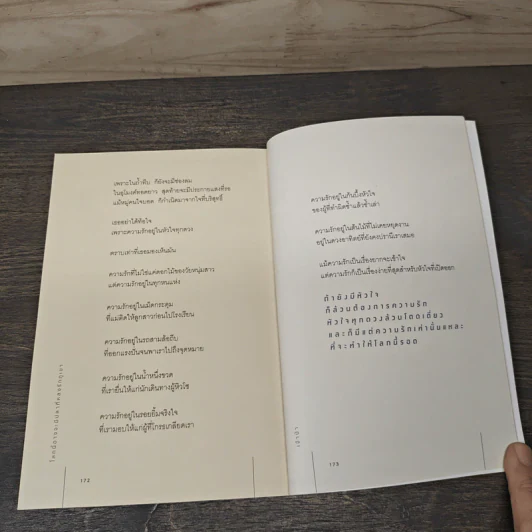 เพราะในถ้ำทึบ ก็ยังจะมีช่องลม
ในอุโมงค์ยอดยาว สุดท้ายจะมีประกายแสงที่รอ
แม้หมู่คนใจบอด ก็กำเนิดมาจากใจที่บริสุทธิ์
เธออย่าได้ท้อใจ
เพราะความรักอยู่ในหัวใจทุกดวง
ตราบเท่าที่เธอมองเห็นมัน
ความรักที่ไม่ใช่แค่ดอกไม้ของวัยหนุ่มสาว
แต่ความรักอยู่ในทุกหนแห่ง
ความรักอยู่ในเม็ดกระดุม
ที่แม่ติดให้ลูกสาวก่อนไปโรงเรียน
ความรักอยู่ในรถสามล้อถีบ
ที่ออกแรงปั่นจนพาเราไปถึงจุดหมาย
ความรักอยู่ในน้ำหนึ่งขวด
ที่เรายื่นให้แก่นักเดินทางผู้หิวโซ
ความรักอยู่ในรอยยิ้มจริงใจ
ที่เรามอบให้แก่ผู้ที่โกรธเกลียดเรา
172
ความรักอยู่ในก้นบึ้งหัวใจ
ของผู้ที่ทำผิดซ้ำแล้วซ้ำเล่า
ความรักอยู่ในต้นไม้ที่ไม่เคยหยุดงาน
อยู่ในดวงอาทิตย์ที่ยังคงปรานีเราเสมอ
แม้ความรักเป็นเรื่องยากจะเข้าใจ
แต่ความรักก็เป็นเรื่องง่ายที่สุดสำหรับหัวใจที่เปิดออก
ถ้ายังมีหัวใจ
ก็ล้วนต้องการความรัก
หัวใจทุกดวงล้วนโดดเดี่ยว
และก็มีแต่ความรักเท่านั้นแหละ
ที่จะทำให้โลกนี้รอด
173